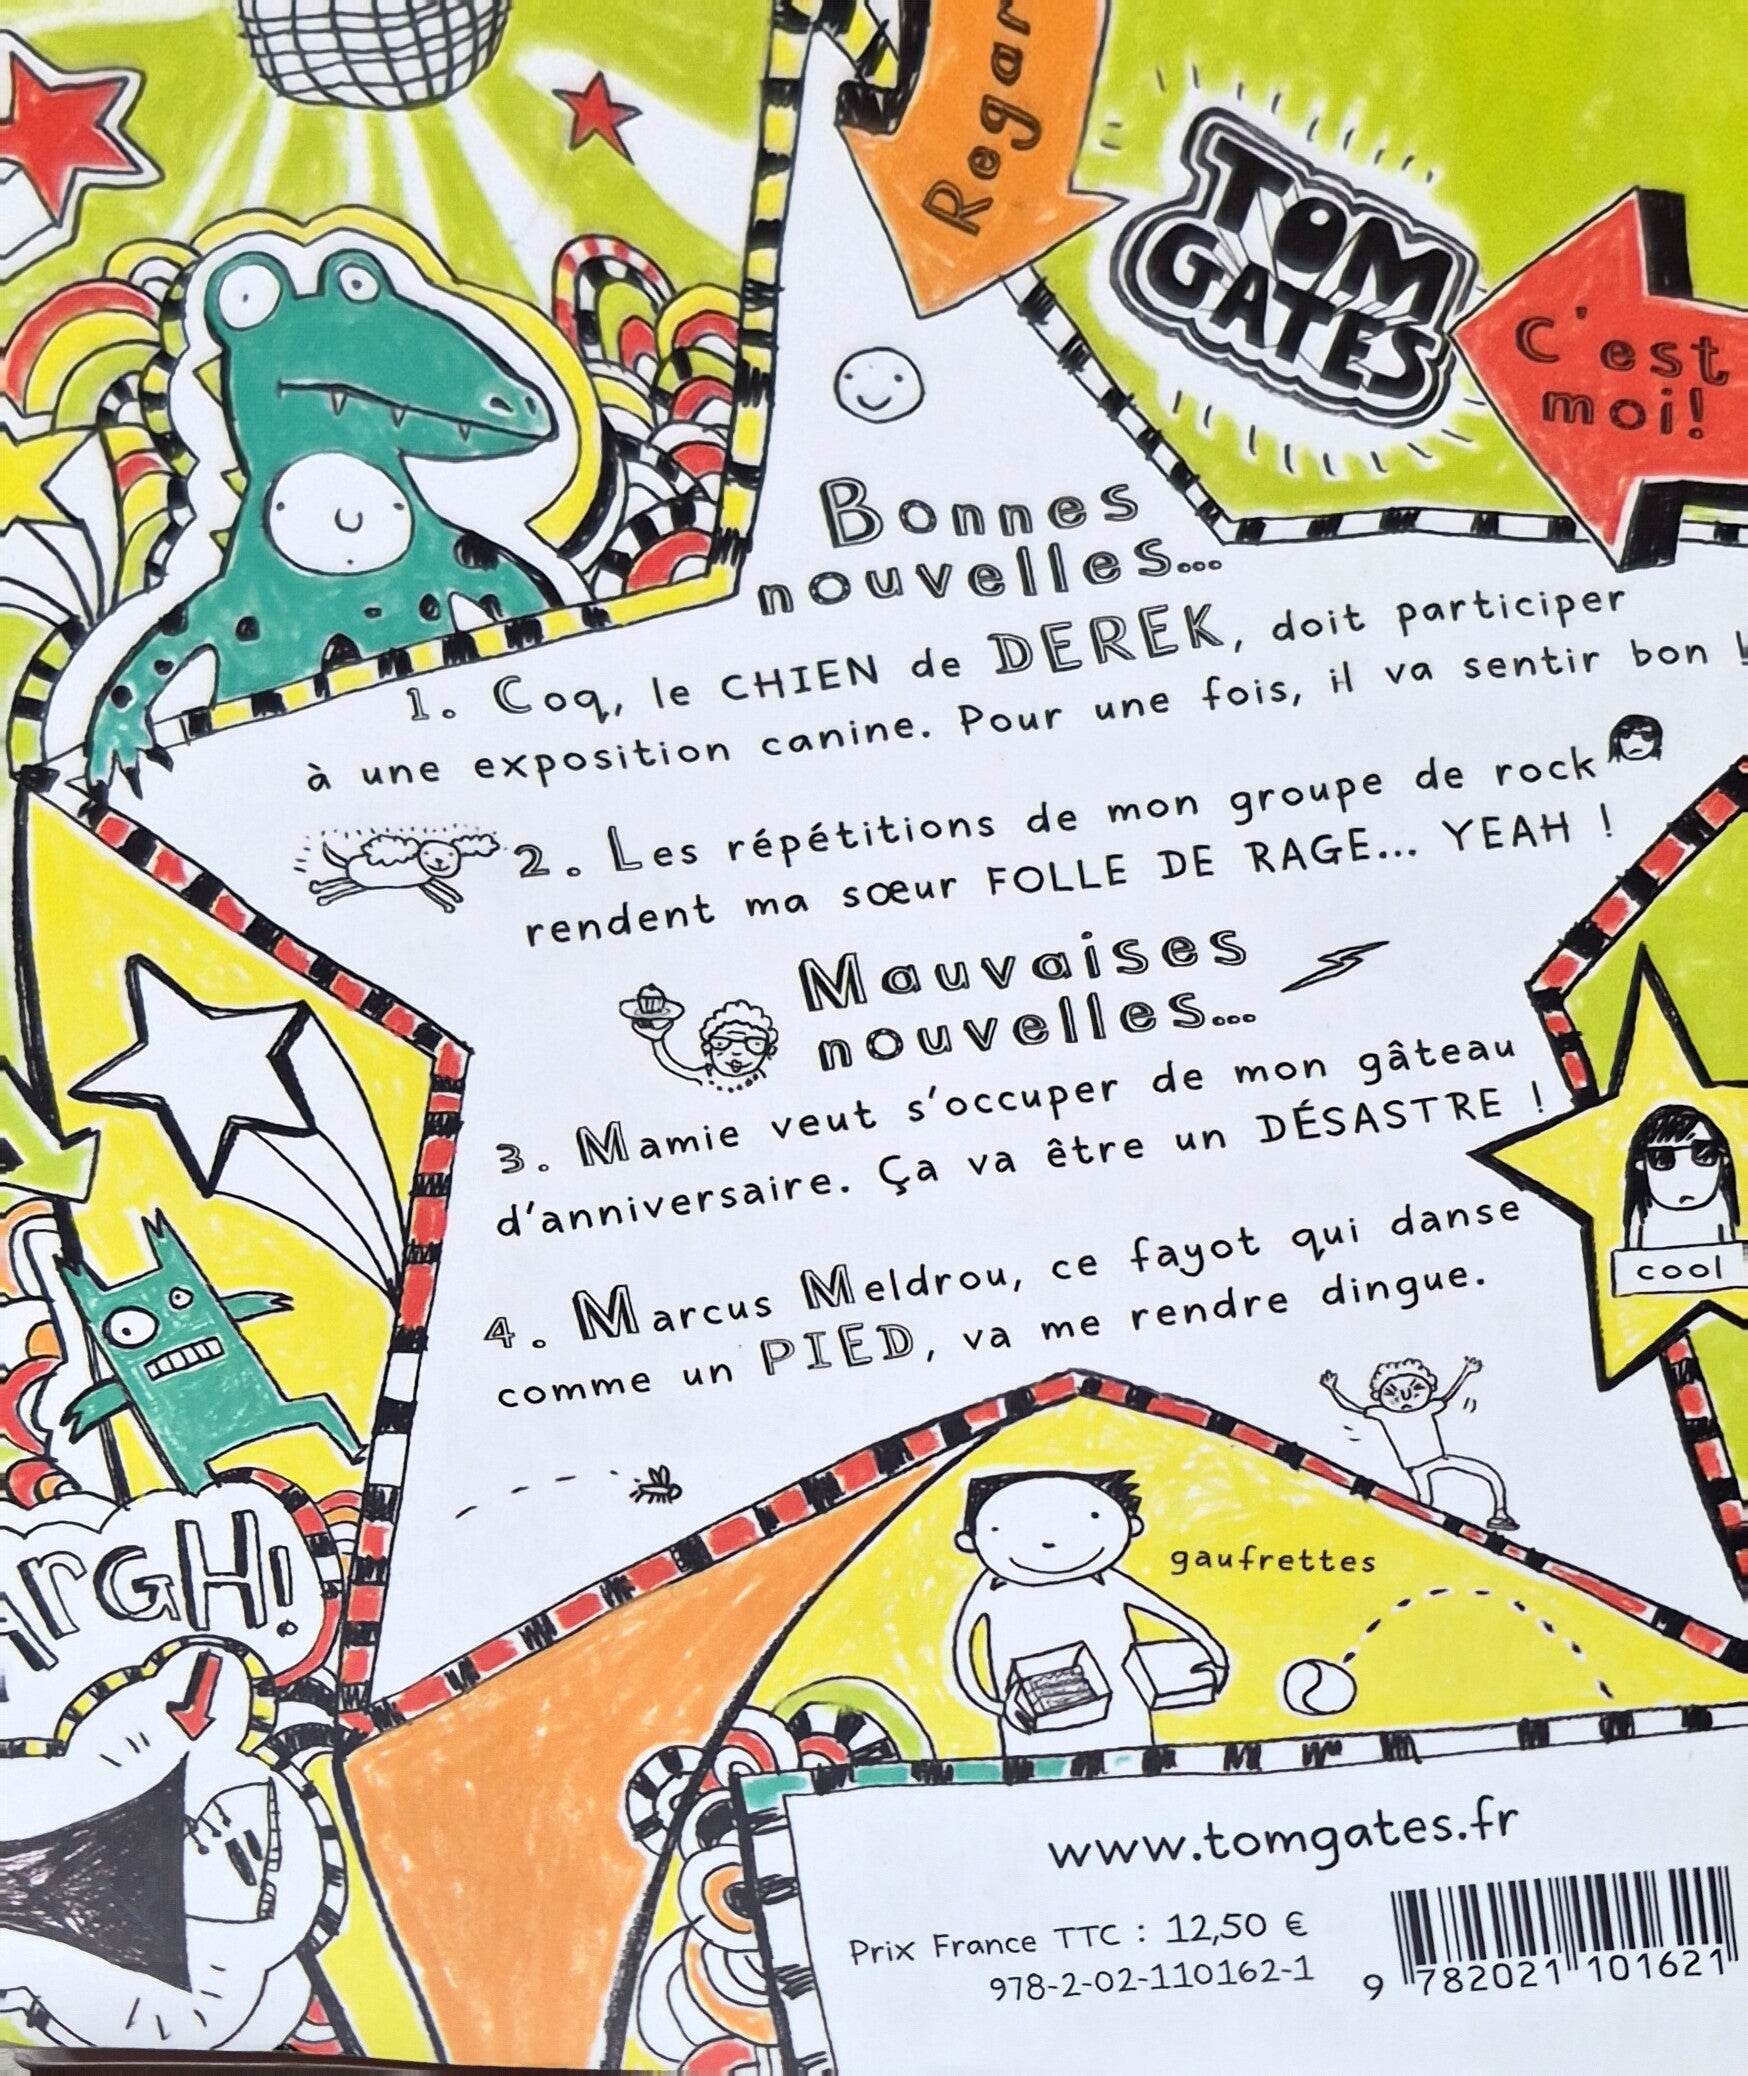 Regar
TOM
GATES
C'est
moi!
Bonnes
nouvelles...
1. Coq, le CHIEN de DEREK, doit participer
à une exposition canine. Pour une fois, il va sentir bon !
2. Les répétitions de mon groupe de rock
rendent ma sœur FOLLE DE RAGE... YEAH !
Mauvaises
nouvelles...
3. Mamie veut s'occuper de mon gâteau
d'anniversaire. Ça va être un DÉSASTRE !
4. Marcus Meldrou, ce fayot qui danse
comme un PIED, va me rendre dingue.
cool
ArGH!
gaufrettes
www.tomgates.fr
Prix France TTC : 12,50 €
978-2-02-110162-1
9 782021 101621